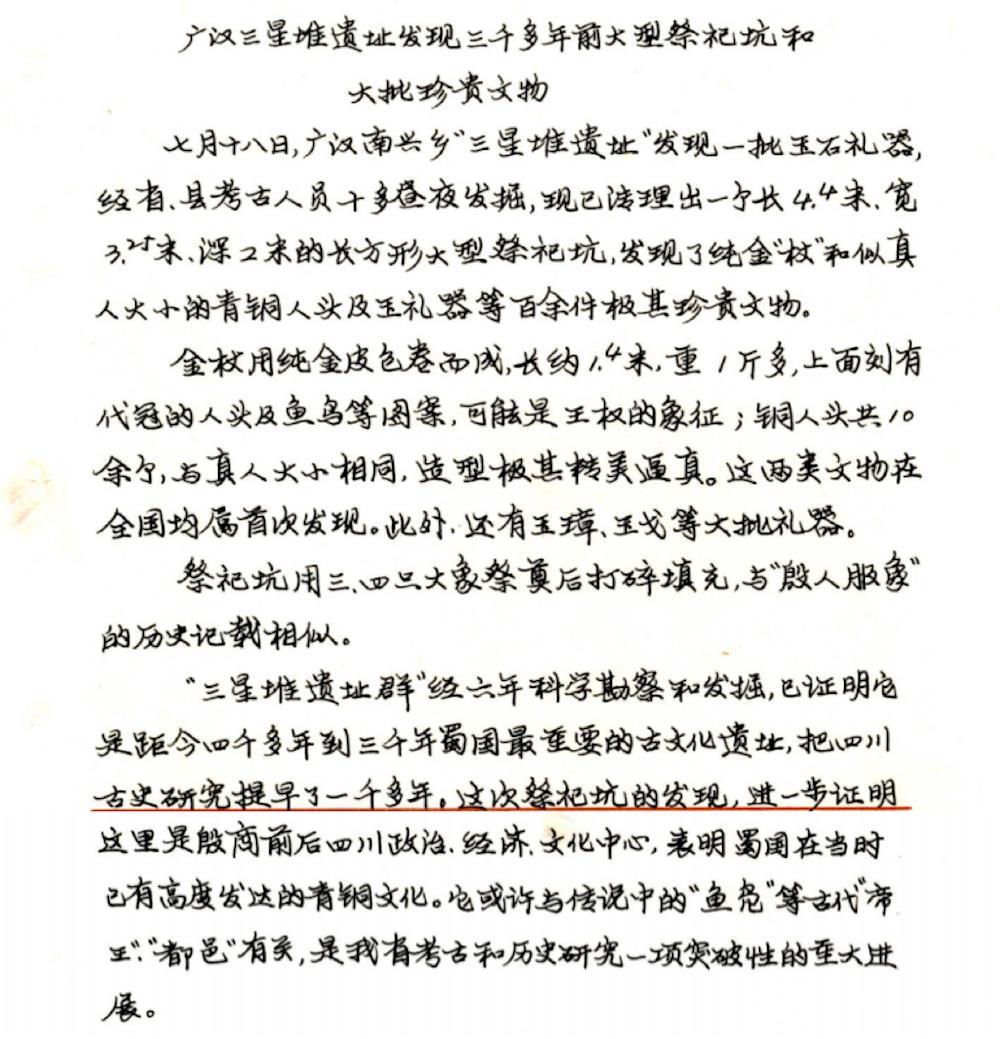 广汉三星堆遗址发现三千多年前大型祭祀坑和
大批珍贵文物
七月十八日,广汉南兴乡“三星堆遗址”发现一批玉石礼器,
经省、县考古人员十多昼夜发掘,现已清理出一个长4.4米、宽
3.25米、深2米的长方形大型祭祀坑,发现了纯金“杖”和似真
人大小的青铜人头及玉礼器等百余件极其珍贵文物。
金杖用纯金皮包卷而成,长约1.4米,重1斤多,上面刻有
代冠的人头及鱼鸟等图案,可能是王权的象征;铜人头共10
余个,与真人大小相同,造型极其精美逼真。这两类文物在
全国均属首次发现。此外、还有玉璋、玉戈等大批礼器。
祭祀坑用三、四只大象祭奠后打碎填充,与“殷人服象”
的历史记载相似。
“三星堆遗址群”经六年科学勘察和发掘,已证明它
是距今四千多年到三千年蜀国最重要的古文化遗址,把四川
古史研究提早了一千多年。这次祭祀坑的发现,进一步证明
这里是殷商前后四川政治、经济、文化中心,表明蜀国在当时
已有高度发达的青铜文化。它或许与传说中的“鱼凫”等古代“帝
王”、“都邑”有关,是我省考古和历史研究一项突破性的重大进
展。